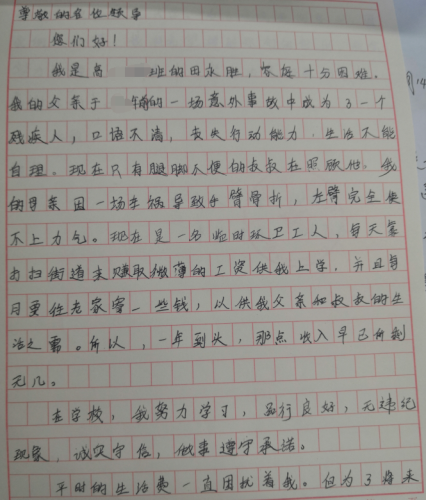 尊敬的各位领导
您们好！
我是高 班的田永胜，家庭十分困难。
我的父亲于 年前的一场意外事故中成为了一个
残疾人，口语不清，丧失行动能力，生活不能
自理。现在只有腿脚不便的叔叔在照顾他。我
的母亲因一场车祸导致手臂骨折，左臂完全使
不上力气。现在是一名临时环卫工人，每天靠
打扫街道来赚取微薄的工资供我上学，并且每
月要往老家寄一些钱，以供我父亲和叔叔的生
活之需。所以，一年到头，那点收入早已所剩
无几。
在学校，我努力学习，品行良好，无违纪
现象，诚实守信，做事遵守承诺。
平时的生活费一直困扰着我。但为了将来